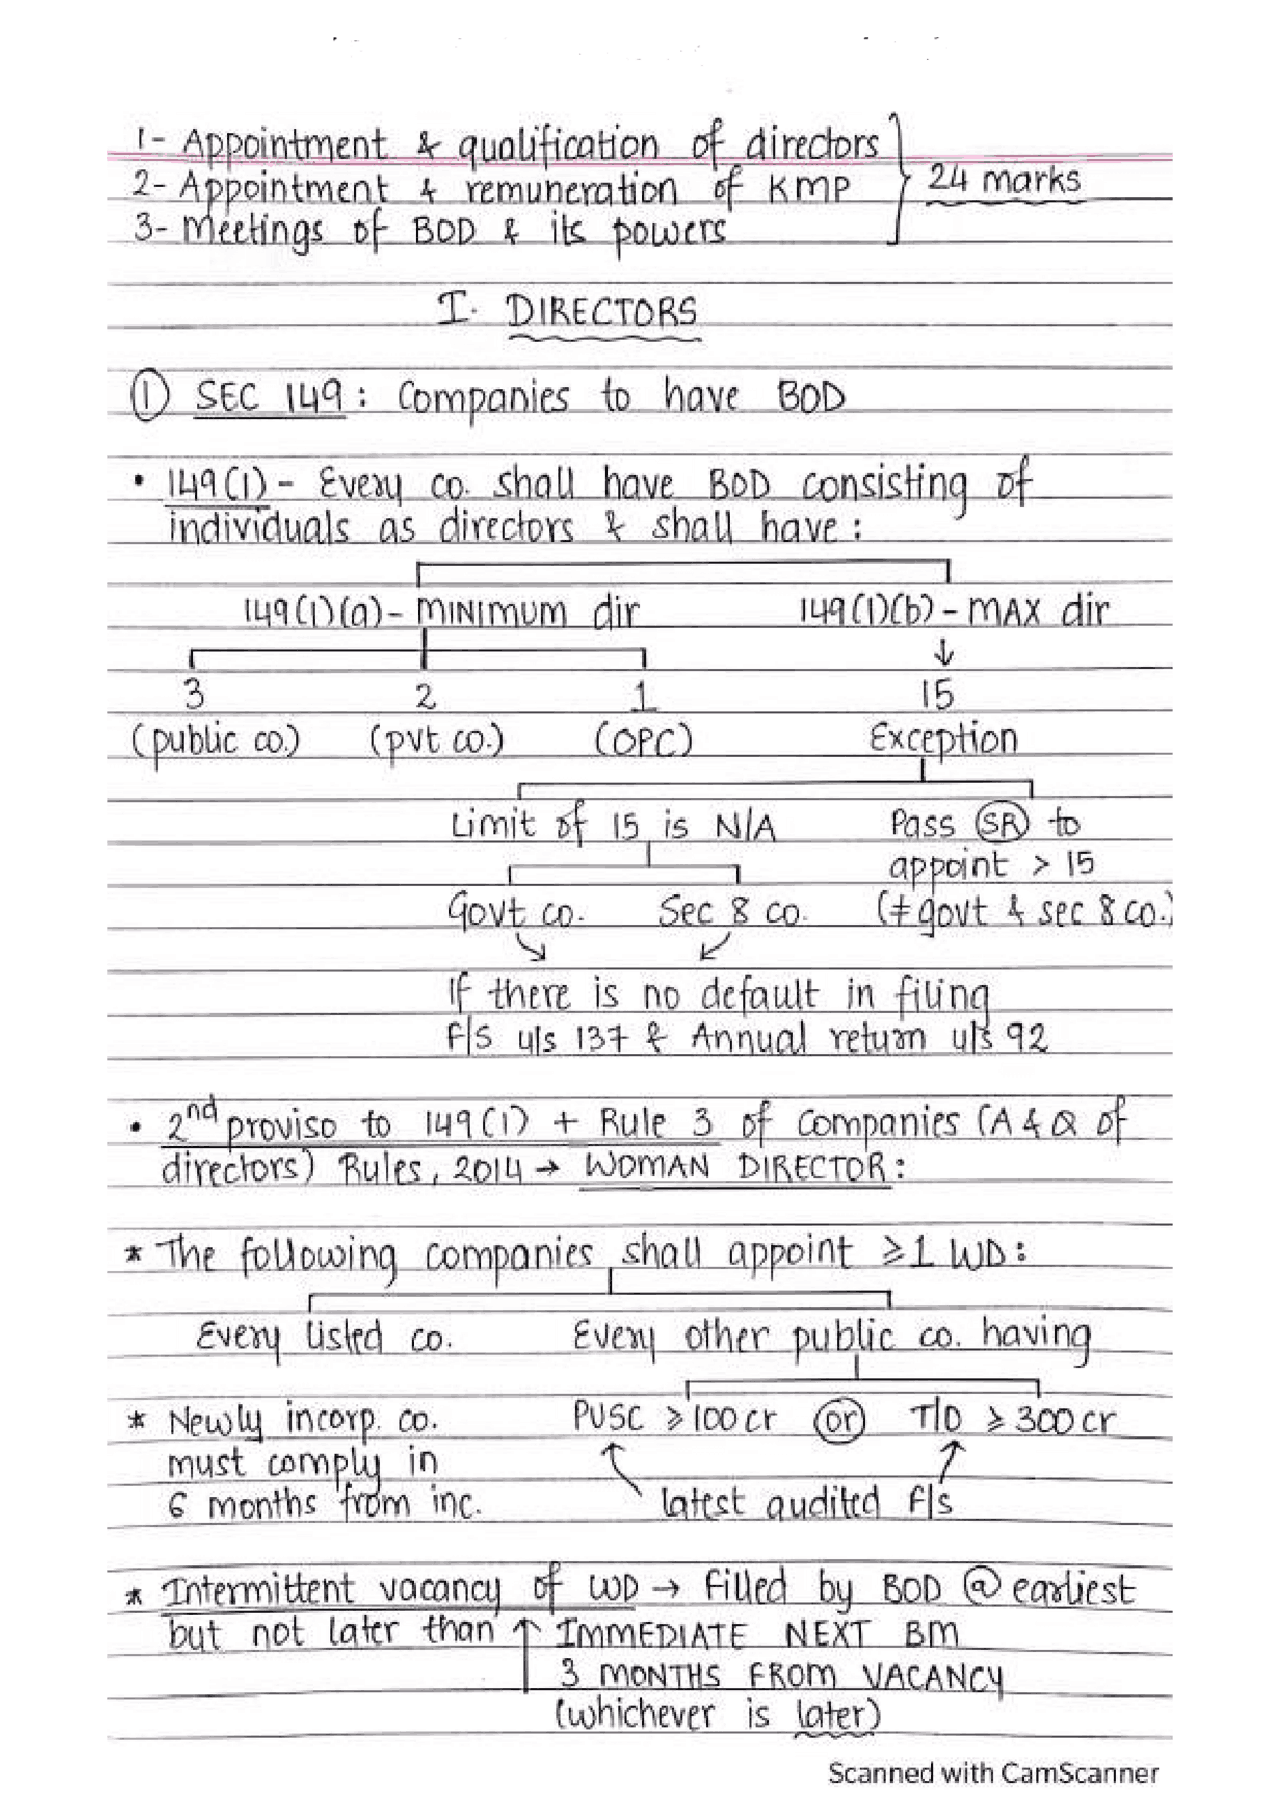 1- Appointment & qualification of directors
2- Appointment & remuneration of KMP
24 marks
3- Meetings of BOD & its powers
I. DIRECTORS
① SEC 149: Companies to have BOD
• 149(1) - Every co. shall have BOD consisting of
individuals as directors & shall have:
149(1)(a) - MINIMUM dir 149(1)(b) - MAX dir
↓
3 2 1 15
(public co.) (pvt co.) (OPC) Exception
Limit of 15 is N/A Pass (SR) to
appoint > 15
Govt co. Sec 8 co. (≠ govt & sec 8 co.)
If there is no default in filing
F/S u/s 137 & Annual return u/s 92
• 2nd proviso to 149(1) + Rule 3 of Companies (A & Q of
directors) Rules, 2014 → WOMAN DIRECTOR:
* The following companies shall appoint ≥1 WD:
Every listed co. Every other public co. having
* Newly incorp. co. PUSC ≥ 100 cr (or) T/O ≥ 300 cr
must comply in
6 months from inc. latest audited F/s
* Intermittent vacancy of WD → Filled by BOD @ earliest
but not later than ↑ IMMEDIATE NEXT BM
3 MONTHS FROM VACANCY
(whichever is later)
Scanned with CamScanner